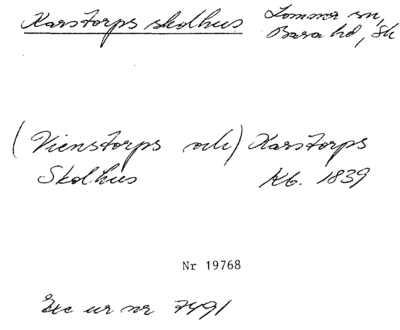 Karstorps skolhus Lomma sn,
Bara hd, Sk
(Vienstorps och) Karstorps
Skolhus Kb. 1839
Nr 19768
Exc ur nr 7491